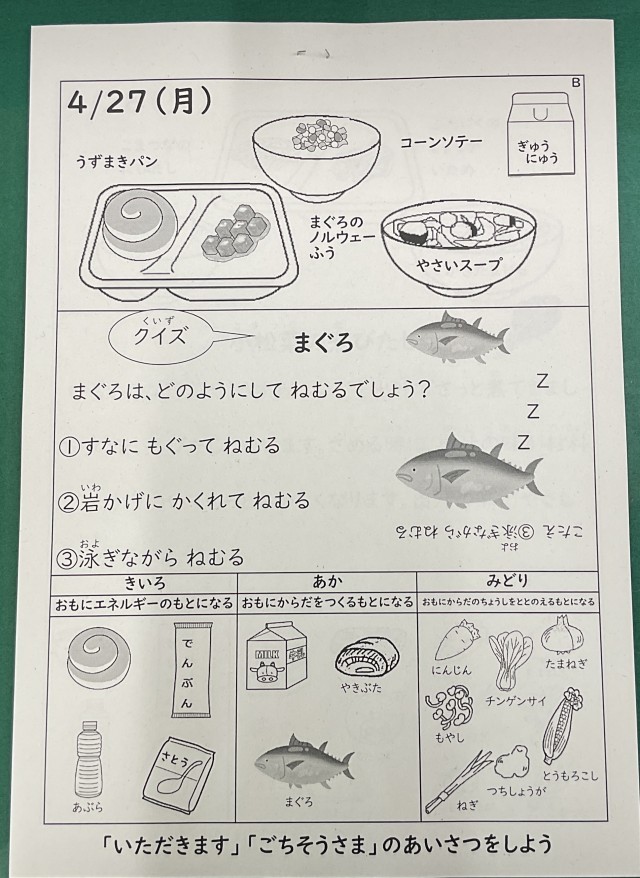 B
4/27(月)
うずまきパン
コーンソテー
ぎゅう
にゅう
まぐろの
ノルウェー
ふう
やさいスープ
くいず
クイズ
まぐろ
まぐろは、どのようにして ねむるでしょう?
Z
Z
Z
①すなに もぐって ねむる
いわ
②岩かげに かくれて ねむる
およ
③泳ぎながら ねむる
およ
こたえ ③泳ぎながら ねむる
きいろ
あか
みどり
おもにエネルギーのもとになる
おもにからだをつくるもとになる
おもにからだのちょうしをととのえるもとになる
でんぷん
あぶら
さとう
MILK
やきぶた
まぐろ
にんじん
チンゲンサイ
たまねぎ
もやし
とうもろこし
つちしょうが
ねぎ
「いただきます」「ごちそうさま」のあいさつをしよう